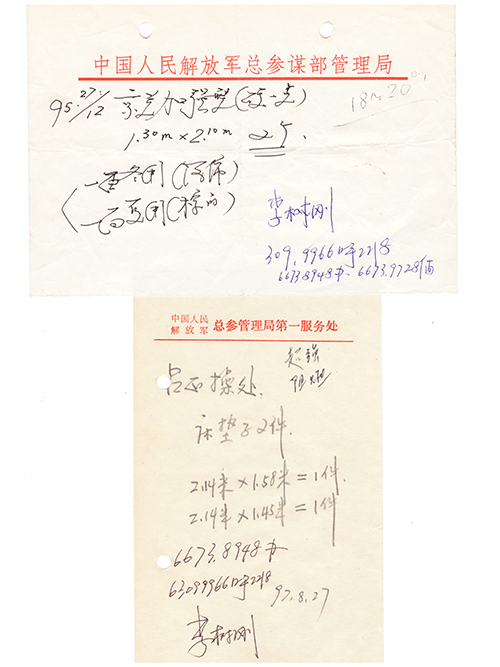 中国人民解放军总参谋部管理局
95.27/12 京兰加强型(
18m20
1.30m×2.10m 2个.
一面冬用(
一面夏用(
李树刚
309.9966呼2218
6673.8948办. 6673.9728宿
中国人民
解放军 总参管理局第一服务处
超强
吕正操处.
床垫子2件.
2.14米×1.58米=1件.
2.14米×1.45米=1件
6673.8948办
63099966呼2218
97.8.27
李树刚